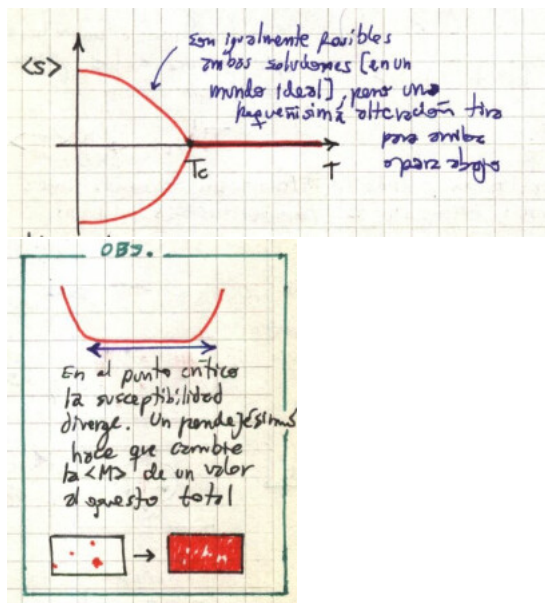 <S>
son igualmente posibles
ambas soluciones [en un
mundo ideal], pero una
pequeñísima alteración tira
para arriba
o para abajo
Tc
T
OBS.
En el punto crítico
la susceptibilidad
diverge. Un pendejésimo
hace que cambie
la <M> de un valor
al opuesto total